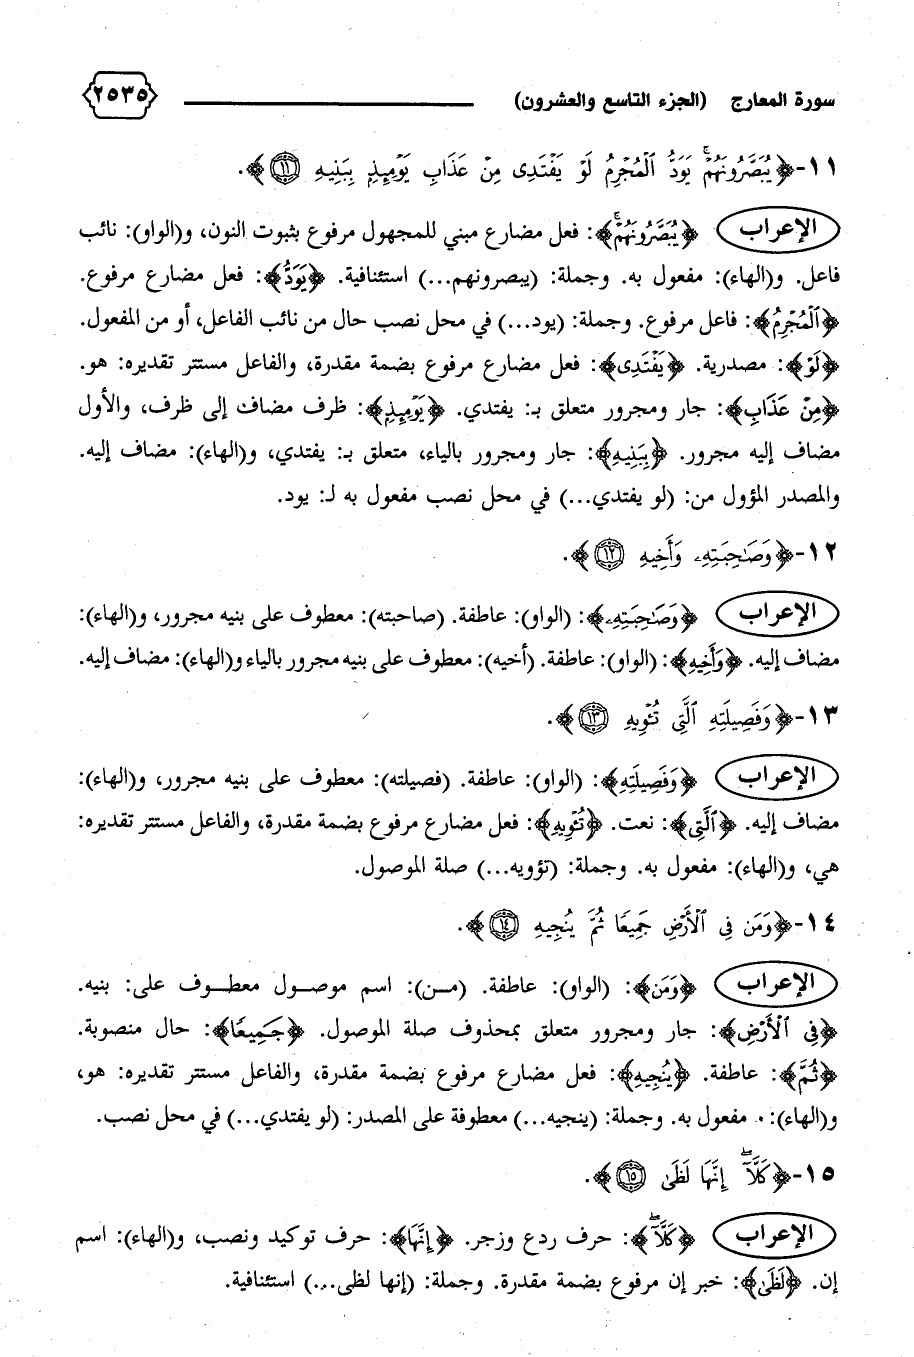 سورة المعارج (الجزء التاسع والعشرون) ٢٥٣٥
١١-﴿يُبَصَّرُونَهُمْ ۚ يَوَدُّ ٱلْمُجْرِمُ لَوْ يَفْتَدِى مِنْ عَذَابِ يَوْمِئِذٍ بِبَنِيهِ ۝١١﴾.
الإعراب ﴿يُبَصَّرُونَهُمْ ۚ﴾: فعل مضارع مبني للمجهول مرفوع بثبوت النون، و(الواو): نائب
فاعل. و(الهاء): مفعول به. وجملة: (يبصرونهم...) استئنافية. ﴿يَوَدُّ﴾: فعل مضارع مرفوع.
﴿ٱلْمُجْرِمُ﴾: فاعل مرفوع. وجملة: (يود...) في محل نصب حال من نائب الفاعل، أو من المفعول.
﴿لَوْ﴾: مصدرية. ﴿يَفْتَدِى﴾: فعل مضارع مرفوع بضمة مقدرة، والفاعل مستتر تقديره: هو.
﴿مِنْ عَذَابِ﴾: جار ومجرور متعلق بـ: يفتدي. ﴿يَوْمِئِذٍ﴾: ظرف مضاف إلى ظرف، والأول
مضاف إليه مجرور. ﴿بِبَنِيهِ﴾: جار ومجرور بالياء، متعلق بـ: يفتدي، و(الهاء): مضاف إليه.
والمصدر المؤول من: (لو يفتدي...) في محل نصب مفعول به لـ: يود.
١٢-﴿وَصَـٰحِبَتِهِۦ وَأَخِيهِ ۝١٢﴾.
الإعراب ﴿وَصَـٰحِبَتِهِۦ﴾: (الواو): عاطفة. (صاحبته): معطوف على بنيه مجرور، و(الهاء):
مضاف إليه. ﴿وَأَخِيهِ﴾: (الواو): عاطفة. (أخيه): معطوف على بنيه مجرور بالياء و(الهاء): مضاف إليه.
١٣-﴿وَفَصِيلَتِهِ ٱلَّتِى تُـْٔوِيهِ ۝١٣﴾.
الإعراب ﴿وَفَصِيلَتِهِ﴾: (الواو): عاطفة. (فصيلته): معطوف على بنيه مجرور، و(الهاء):
مضاف إليه. ﴿ٱلَّتِى﴾: نعت. ﴿تُـْٔوِيهِ﴾: فعل مضارع مرفوع بضمة مقدرة، والفاعل مستتر تقديره:
هي، و(الهاء): مفعول به. وجملة: (تؤويه...) صلة الموصول.
١٤-﴿وَمَن فِى ٱلْأَرْضِ جَمِيعًا ثُمَّ يُنجِيهِ ۝١٤﴾.
الإعراب ﴿وَمَن﴾: (الواو): عاطفة. (مـن): اسم موصـول معطـوف على: بنيه.
﴿فِي ٱلْأَرْضِ﴾: جار ومجرور متعلق بمحذوف صلة الموصول. ﴿جَمِيعًا﴾: حال منصوبة.
﴿ثُمَّ﴾: عاطفة. ﴿يُنجِيهِ﴾: فعل مضارع مرفوع بضمة مقدرة، والفاعل مستتر تقديره: هو،
و(الهاء): مفعول به. وجملة: (ينجيه...) معطوفة على المصدر: (لو يفتدي...) في محل نصب.
١٥-﴿كَلَّآ ۖ إِنَّهَا لَظَىٰ ۝١٥﴾.
الإعراب ﴿كَلَّآ ۖ﴾: حرف ردع وزجر. ﴿إِنَّهَا﴾: حرف توكيد ونصب، و(الهاء): اسم
إن. ﴿لَظَىٰ﴾: خبر إن مرفوع بضمة مقدرة. وجملة: (إنها لظى...) استئنافية.